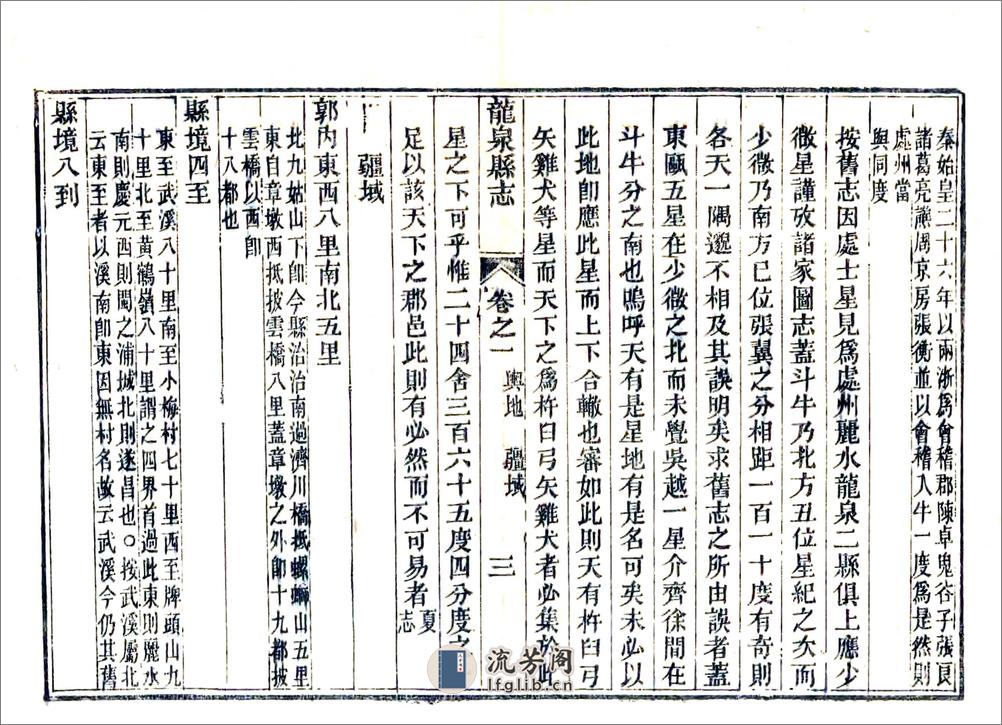 秦始皇二十六年以兩浙爲會稽郡陳卓鬼谷子張良
諸葛亮譙周京房張衡並以會稽入牛一度爲是然則
處州當
與同度
按舊志因處士星見爲處州麗水龍泉二縣俱上應少
微星謹攷諸家圖志蓋斗牛乃北方丑位星紀之次而
少微乃南方巳位張翼之分相距一百一十度有奇則
各天一隅邈不相及其誤明矣求舊志之所由誤者蓋
東甌五星在少微之北而未覺吳越一星介齊徐間在
斗牛分之南也嗚呼天有是星地有是名可矣未必以
此地卽應此星而上下合轍也審如此則天有杵臼弓
矢雞犬等星而天下之爲杵臼弓矢雞犬者必集於此
星之下可乎惟二十四舍三百六十五度四分度之
足以該天下之郡邑此則有必然而不可易者夏志
龍泉縣志
卷之一
輿地
疆域
三
疆域
郭內東西八里南北五里
北九姑山下卽今縣治治南過濟川橋抵螺螄山五里
東自章墩西抵披雲橋八里蓋章墩之外卽十九都披
雲橋以西卽
十八都也
縣境四至
東至武溪八十里南至小梅村七十里西至牌頭山九
十里北至黃鶴嶺八十里謂之四界首過此東則麗水
南則慶元西則閩之浦城北則遂昌也○按武溪屬北
云東至者以溪南卽東因無村名故云武溪今仍其舊
縣境八到
流芳阁
lfglib.cn